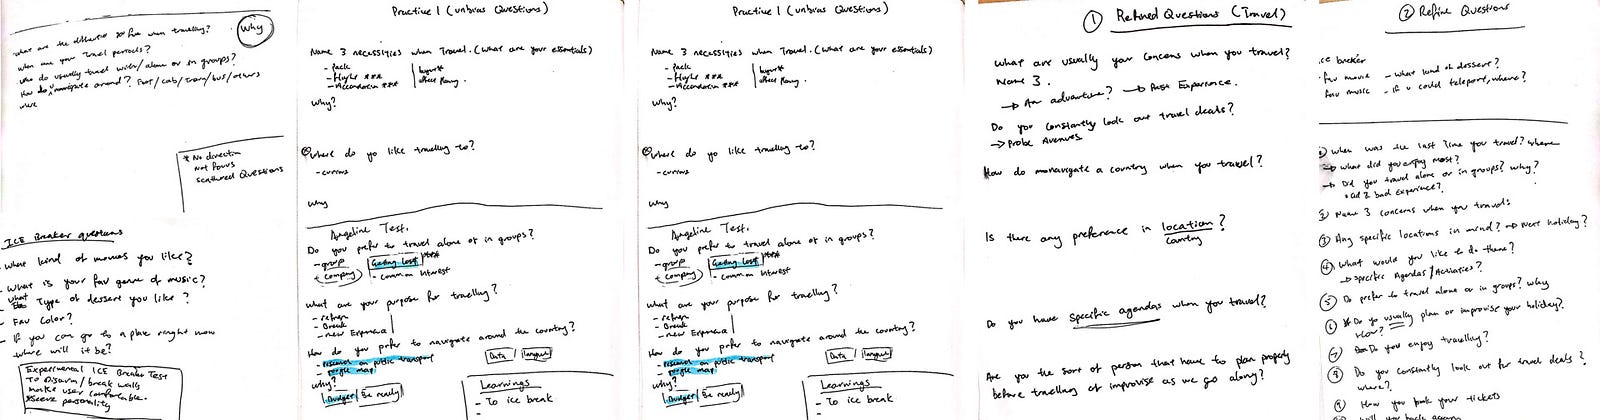 Why
what are the different
when travelling?
when are your travel periods?
who do usually travel with/alone or in groups?
How do navigate around? Foot/cab/train/bus/others
* No direction
Not focus
scattered Questions
ICE Breaker questions
- What kind of movies you like?
- What is your fav genre of music?
- What Type of dessert you like?
- Fav color?
- If you can go to a place right now
where will it be?
Experimental ICE Breaker Test
To Disarm/break walls
make user comfortable.
personality
Practice 1 (unbias Questions)
Name 3 necessities when Travel. (What are your essentials)
- Pack
- Flight ***
- Accomodation ***
Why?
where do yo like travelling to?
Why
Angeline Test.
Do you prefer to travel alone or in groups?
- group
+ company
Getting lost
- common interest
what are your purpose for travelling?
- refresh
- Break
- new Experience
How do you prefer to navigate around the country?
- research on public transport
- google map
Data / language
why?
Budget / Be ready
Learnings
- To ice break
-
Practice 1 (unbias Questions)
Name 3 necessities when Travel. (What are your essentials)
- Pack
- Flight ***
- Accomodation ***
Why?
where do yo like travelling to?
Why
Angeline Test.
Do you prefer to travel alone or in groups?
- group
+ company
Getting lost
- common interest
what are your purpose for travelling?
- refresh
- Break
- new Experience
How do you prefer to navigate around the country?
- research on public transport
- google map
Data / language
why?
Budget / Be ready
Learnings
- To ice break
-
① Refined Questions (Travel)
What are usually your concerns when you travel?
Name 3.
→ An adventure? → Past Experience.
Do you constantly look out travel deals?
→ Probe Avenues
How do you navigate a country when you travel?
Is there any preference in location?
Country
Do you have specific agendas when you travel?
Are you the sort of person that have to plan properly
before travelling or improvise as we go along?
② Refine Questions
ice breaker
- fav movie - what kind of dessert?
fav music - if u could teleport, where?
① When was the last time you travel? where
→ what did you enjoy most?
→ Did you travel alone or in groups? Why?
bad experience?
② Name 3 concerns when you travel?
③ Any specific locations in mind? → Next holiday?
④ What would you like to do there?
→ Specific Agendas/Activities?
⑤ Do prefer to travel alone or in groups? why
⑥ Do yo usually plan or improvise your holiday?
How?
⑦ Do you enjoy travelling?
⑧ Do you constantly look out for travel deals?
where?
⑨ How you book your tickets